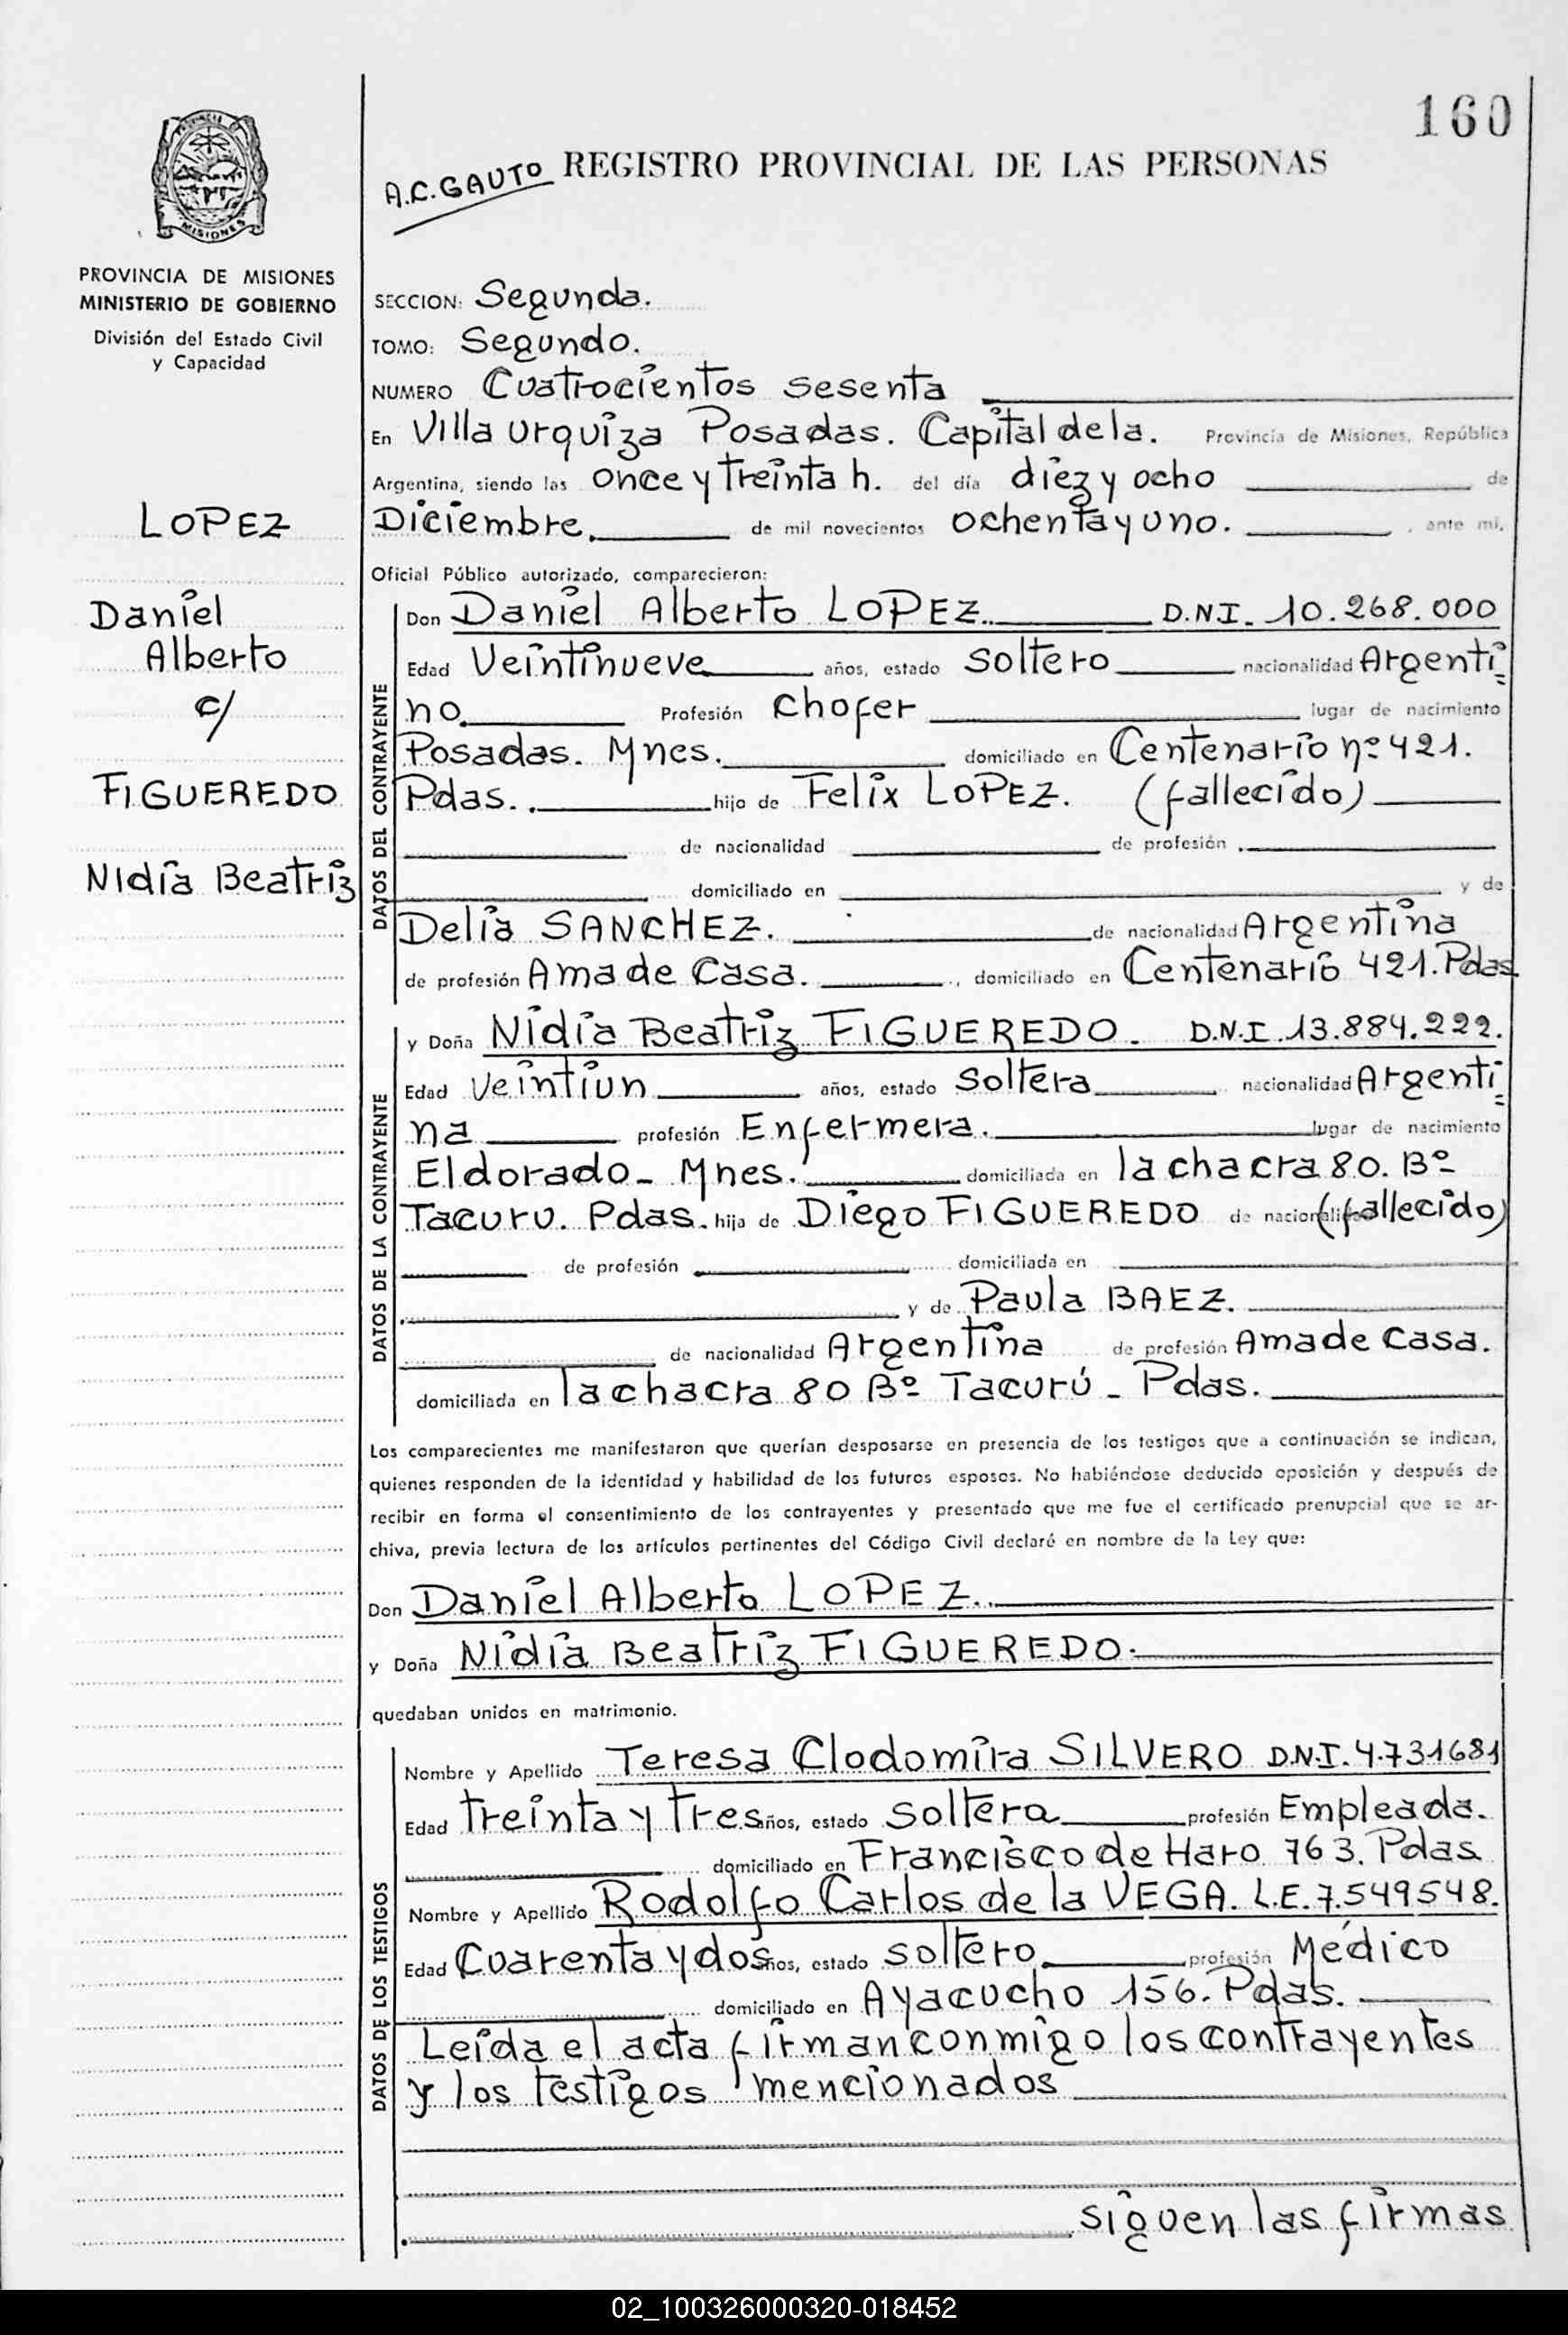 160
A.C. GAUTO
REGISTRO PROVINCIAL DE LAS PERSONAS
MISIONES
PROVINCIA DE MISIONES
MINISTERIO DE GOBIERNO
División del Estado Civil
y Capacidad
LOPEZ
Daniel
Alberto
c/
FIGUEREDO
Nidia Beatriz
SECCION: Segunda.
TOMO: Segundo.
NUMERO Cuatrocientos sesenta
En Villa Urquiza Posadas. Capital de la. Provincia de Misiones, República
Argentina, siendo las once y treinta h. del día diez y ocho de
Diciembre. de mil novecientos ochenta y uno. , ante mí,
Oficial Público autorizado, comparecieron:
DATOS DEL CONTRAYENTE
Don Daniel Alberto LOPEZ. D.N.I. 10.268.000
Edad Veintinueve años, estado soltero nacionalidad Argenti=
no. Profesión chofer lugar de nacimiento
Posadas. Mnes. domiciliado en Centenario nº 421.
Pdas. hijo de Felix LOPEZ. (fallecido)
de nacionalidad de profesión
domiciliado en y de
Delia SANCHEZ. de nacionalidad Argentina
de profesión Ama de Casa. , domiciliado en Centenario 421. Pdas
DATOS DE LA CONTRAYENTE
y Doña Nidia Beatriz FIGUEREDO. D.N.I. 13.884.222.
Edad Veintiun años, estado Soltera nacionalidad Argenti=
na profesión Enfermera. lugar de nacimiento
Eldorado- Mnes. domiciliada en la chacra 80. Bº
Tacuru. Pdas. hija de Diego FIGUEREDO de nacionalidad (fallecido)
de profesión domiciliada en
y de Paula BAEZ.
de nacionalidad Argentina de profesión Ama de Casa.
domiciliada en la chacra 80 Bº Tacurú - Pdas.
Los comparecientes me manifestaron que querían desposarse en presencia de los testigos que a continuación se indican,
quienes responden de la identidad y habilidad de los futuros esposos. No habiéndose deducido oposición y después de
recibir en forma el consentimiento de los contrayentes y presentado que me fue el certificado prenupcial que se ar-
chiva, previa lectura de los artículos pertinentes del Código Civil declaré en nombre de la Ley que:
Don Daniel Alberto LOPEZ.
y Doña Nidia Beatriz FIGUEREDO.
quedaban unidos en matrimonio.
DATOS DE LOS TESTIGOS
Nombre y Apellido Teresa Clodomira SILVERO D.N.I. 4.731681
Edad treinta y tres años, estado soltera profesión Empleada.
domiciliado en Francisco de Haro 763. Pdas.
Nombre y Apellido Rodolfo Carlos de la VEGA. L.E. 7.549548.
Edad Cuarenta y dos años, estado soltero. profesión Médico
domiciliado en Ayacucho 156. Pdas.
Leida el acta firman conmigo los contrayentes
y los testigos mencionados
siguen las firmas
02_100326000320-018452